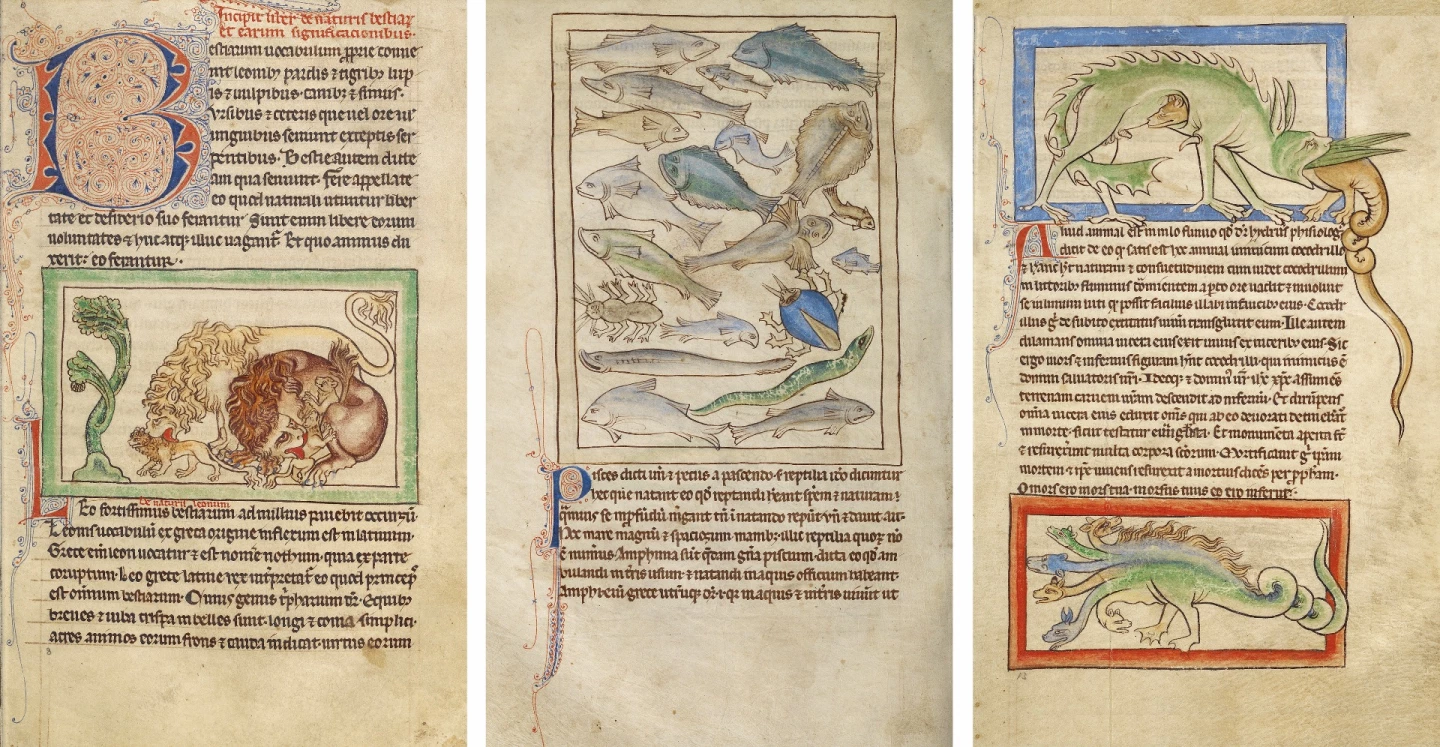 Incipit liber de naturis bestiar
et earum significationibus.
Bestiarum uocabulum proprie conue
nit leonibȝ pardis ⁊ tigribȝ lup
is ⁊ uulpibus canibȝ ⁊ simiis.
Vrsibus ⁊ ceteris que uel ore uel
unguibus seuiunt exceptis ser
pentibus. Bestie autem dicte
am qua seuiunt. fere appellate
eo quod naturali utuntur liber
tate et desiderio suo ferantur. Sunt enim libere eorum
uoluntates ⁊ huc atqȝ illuc uagant. Et quo animus dux
erit: eo ferantur.
De naturis leonum
Leo fortissimus bestiarum ad nullius pauebit occursū.
Leonis uocabulū ex greca origine inflexum est in latinum.
Grece enī leon uocatur ⁊ est nomē nothum. quia ex parte
coruptum. Leo grete latine rex intpretat eo quod princeps
est omnium bestiarum. Cuius genus tpharium dr. Equibȝ
breues ⁊ iuba crispa inbelles sunt. longi ⁊ coma simplici.
acres animos eorum frons ⁊ cauda indicat. uirtus eorum
8
Pisces dicti un ⁊ pecus a pascendo. f reptilia ideo dicuntur
hec que natant eo qd reptandi habeant spem ⁊ naturam ⁊
quis se in pfūdū mgant tn in natando reput. vn ⁊ dauit ait.
Hec mare magnū ⁊ spaciosum manibȝ. illic reptilia quor no
ē numus. Amphiuia sūt qdam gna piscium. dicta eo qd am
bulandi in tris usum ⁊ natandi in aquis officium habeant.
Amphi enī grece utrūqȝ dr. i. qr in aquis ⁊ in tris uiuūt ut
Aliud animal est in nilo fluuio qd dr hydrus. physiolog
dicit de eo q satis est hoc animal inimicum cocodrillo
⁊ hanc ht naturam ⁊ consuetudinem cum uidet cocodrillum
in littoribȝ fluminis dormientem apto ore uadit ⁊ inuoluit
se in limum luti qo possit facilius illabi in faucibȝ eius. Cocodr
illus g de subito excitatus uiuū transglutit eum. Ille autem
dilanians omnia uiscera eius exit uiuus ex uisceribȝ eius. Sic
ergo mors ⁊ infernus figuram hnt cocodrilli. qui inimicus ē
domini saluatoris nri. Ideoqȝ ⁊ dominus nr ihc xpc assumēs
terrenam carnem nram descendit ad infernū. Et dirūpens
omia uiscera eius eduxit omis qui ab eo deuorati detinebant
in morte. sicut testatur euuglista. Et monumēta apta st
⁊ resurexerūt multa corpora scorum. Mortificauit g ipam
mortem ⁊ ipe uiuens resurexit a mortuis dices per ppham.
O mors ero mors tua. morsus tuus ero inferne.